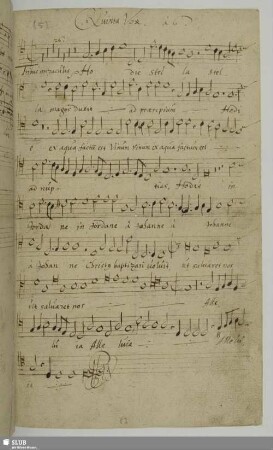 Quinta Vox. a 6
Tribus miraculis Ho die stel la stel
la magos duxit ad praesepium Hodi
e ex aqua factum est Vinum Vinum ex aqua factum est
ad nup tias, Hodie in
Jorda ne in Jordane à Johanne à Johanne
à Johan ne Christus baptizari voluit
salvaret nos Alle
lu ia Alle luia
SLUB